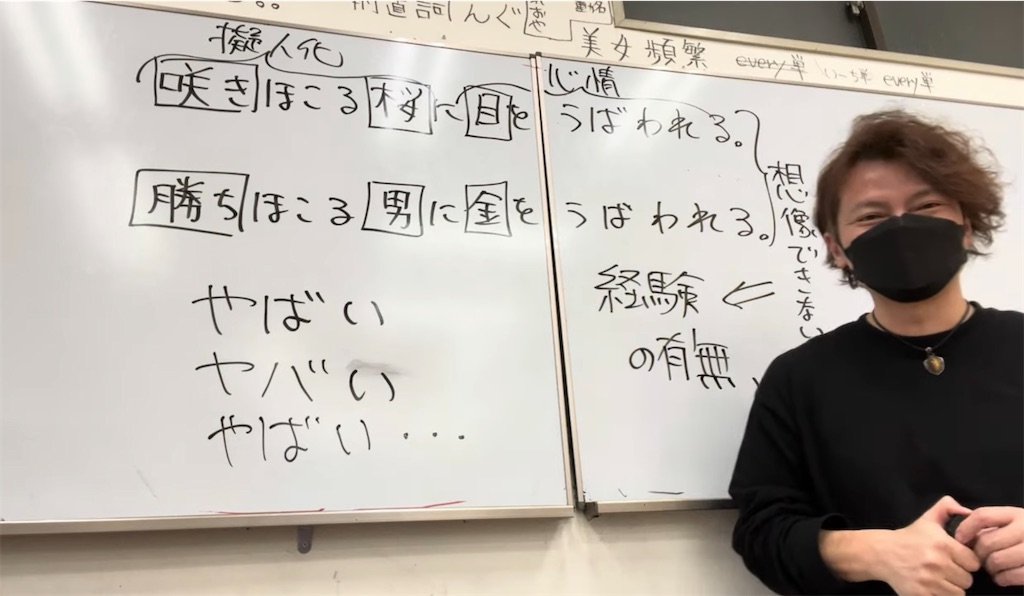 詞んぐ
美女頻繁 every単 いーち単 every単
擬人化
心情
咲きほこる桜に目をうばわれる。
勝ちほこる男に金をうばわれる。
想像できない
経験
の有無
やばい
ヤバい
やばい・・・